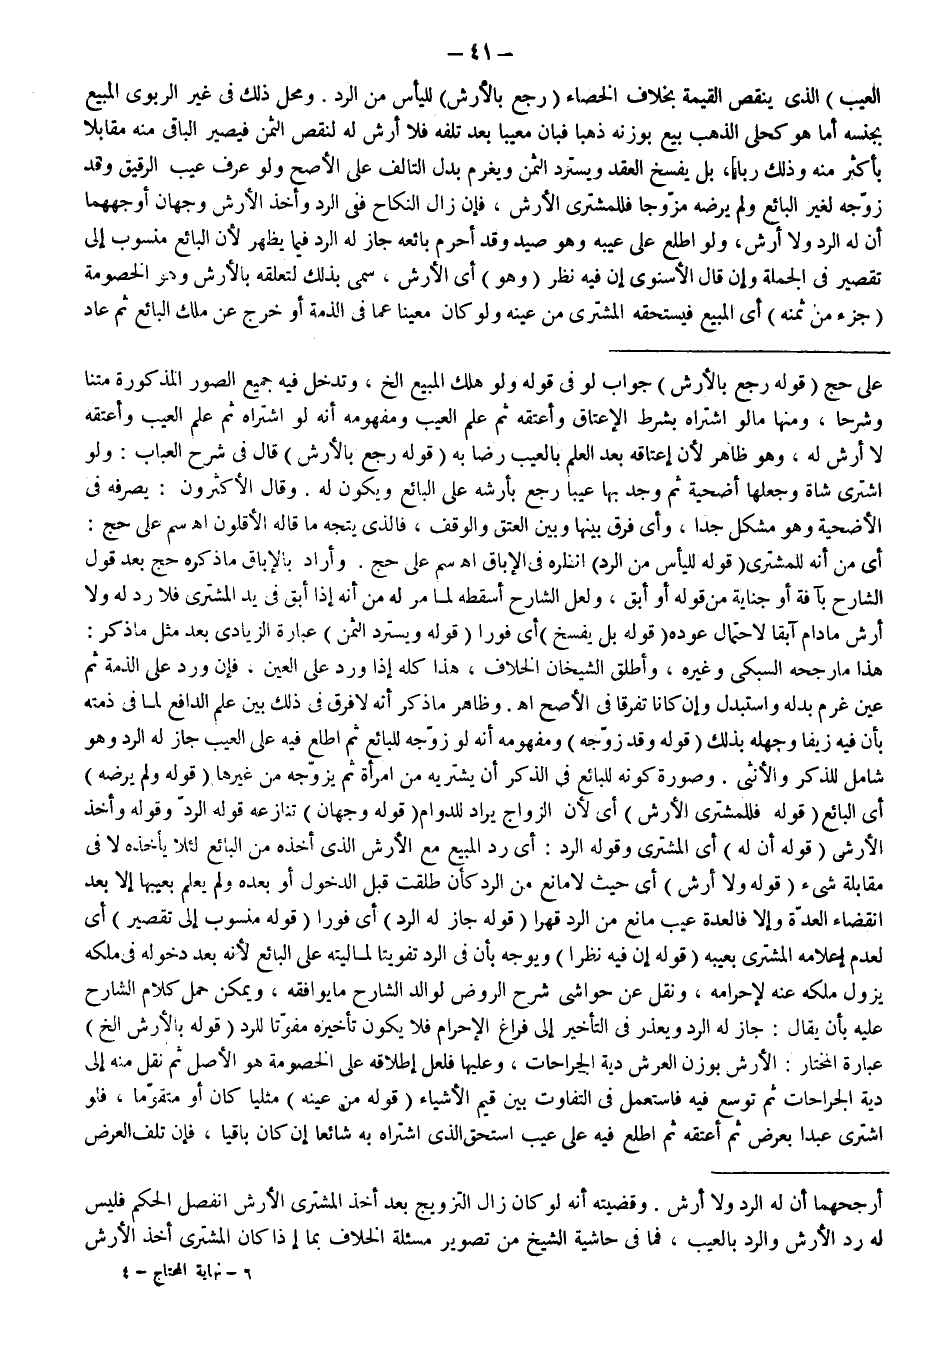 – ٤١ –
العيب ) الذى ينقص القيمة بخلاف الخصاء ( رجع بالأرش) لليأس من الرد . ومحل ذلك فى غير الربوى المبيع
بجنسه أما هو كحلى الذهب بيع بوزنه ذهبا فبان معيبا بعد تلفه فلا أرش له لنقص الثمن فيصير الباقى منه مقابلا
بأكثر منه وذلك ربا، بل يفسخ العقد ويسترد الثمن ويغرم بدل التالف على الأصح ولو عرف عيب الرقيق وقد
زوّجه لغير البائع ولم يرضه مزوّجا فللمشترى الأرش ، فإن زال النكاح ففى الرد وأخذ الأرش وجهان أوجههما
أن له الرد ولا أرش، ولو اطلع على عيبه وهو صيد وقد أحرم بائعه جاز له الرد فيما يظهر لأن البائع منسوب إلى
تقصير فى الجملة وإن قال الأسنوى إن فيه نظر ( وهو ) أى الأرش ، سمى بذلك لتعلقه بالأرش وهو الخصومة
( جزء من ثمنه ) أى المبيع فيستحقه المشترى من عينه ولو كان معينا عما فى الذمة أو خرج عن ملك البائع ثم عاد
على حج ( قوله رجع بالأرش ) جواب لو فى قوله ولو هلك المبيع الخ ، وتدخل فيه جميع الصور المذكورة متنا
وشرحا ، ومنها مالو اشتراه بشرط الإعتاق وأعتقه ثم علم العيب ومفهومه أنه لو اشتراه ثم علم العيب وأعتقه
لا أرش له ، وهو ظاهر لأن إعتاقه بعد العلم بالعيب رضا به ( قوله رجع بالأرش ) قال فى شرح العباب : ولو
اشترى شاة وجعلها أضحية ثم وجد بها عيبا رجع بأرشه على البائع ويكون له . وقال الأكثرون : يصرفه فى
الأضحية وهو مشكل جدا ، وأى فرق بينها وبين العتق والوقف ، فالذى يتجه ما قاله الأقلون اه سم على حج :
أى من أنه للمشترى( قوله لليأس من الرد) انظره فى الإباق اه سم على حج . وأراد بالإباق ماذكره حج بعد قول
الشارح بآفة أو جناية من قوله أو أبق ، ولعل الشارح أسقطه لما مر له من أنه إذا أبق فى يد المشترى فلا رد له ولا
أرش مادام آبقا لاحتمال عوده( قوله بل يفسخ )أى فورا ( قوله ويسترد الثمن ) عبارة الزيادى بعد مثل ماذكر :
هذا مارجحه السبكى وغيره ، وأطلق الشيخان الخلاف ، هذا كله إذا ورد على العين ، فإن ورد على الذمة ثم
عين غرم بدله واستبدل وإن كانا تفرقا فى الأصح اه . وظاهر ماذكر أنه لافرق فى ذلك بين علم الدافع لما فى ذمته
بأن فيه زيفا وجهله بذلك ( قوله وقد زوّجه ) ومفهومه أنه لو زوّجه للبائع ثم اطلع فيه على العيب جاز له الرد وهو
شامل للذكر والأنثى . وصورة كونه للبائع فى الذكر أن يشتريه من امرأة ثم يزوّجه من غيرها ( قوله ولم يرضه )
أى البائع( قوله فللمشترى الأرش ) أى لأن الزواج يراد للدوام( قوله وجهان ) تنازعه قوله الردّ وقوله وأخذ
الأرش ( قوله أن له ) أى المشترى وقوله الرد : أى رد المبيع مع الأرش الذى أخذه من البائع لئلا يأخذه لا فى
مقابلة شىء ( قوله ولا أرش ) أى حيث لامانع من الرد كأن طلقت قبل الدخول أو بعده ولم يعلم بعيبها إلا بعد
انقضاء العدّة وإلا فالعدة عيب مانع من الرد قهرا ( قوله جاز له الرد ) أى فورا ( قوله منسوب إلى تقصير ) أى
لعدم إعلامه المشترى بعيبه ( قوله إن فيه نظرا ) ويوجه بأن فى الرد تفويتا لماليته على البائع لأنه بعد دخوله فى ملكه
يزول ملكه عنه لإحرامه ، ونقل عن حواشى شرح الروض لوالد الشارح مايوافقه ، ويمكن حمل كلام الشارح
عليه بأن يقال : جاز له الرد ويعذر فى التأخير إلى فراغ الإحرام فلا يكون تأخيره مفوّتا للرد ( قوله بالأرش الخ )
عبارة المختار : الأرش بوزن العرش دية الجراحات ، وعليها فلعل إطلاقه على الخصومة هو الأصل ثم نقل منه إلى
دية الجراحات ثم توسع فيه فاستعمل فى التفاوت بين قيم الأشياء ( قوله من عينه ) مثليا كان أو متقوّما ، فلو
اشترى عبدا بعرض ثم أعتقه ثم اطلع فيه على عيب استحق الذى اشتراه به شائعا إن كان باقيا ، فإن تلف العرض
أرجحهما أن له الرد ولا أرش . وقضيته أنه لو كان زال التزويج بعد أخذ المشترى الأرش انفصل الحكم فليس
له رد الأرش والرد بالعيب ، فما فى حاشية الشيخ من تصوير مسئلة الخلاف بما إذا كان المشترى أخذ الأرش
٦ – نهاية المحتاج – ٤